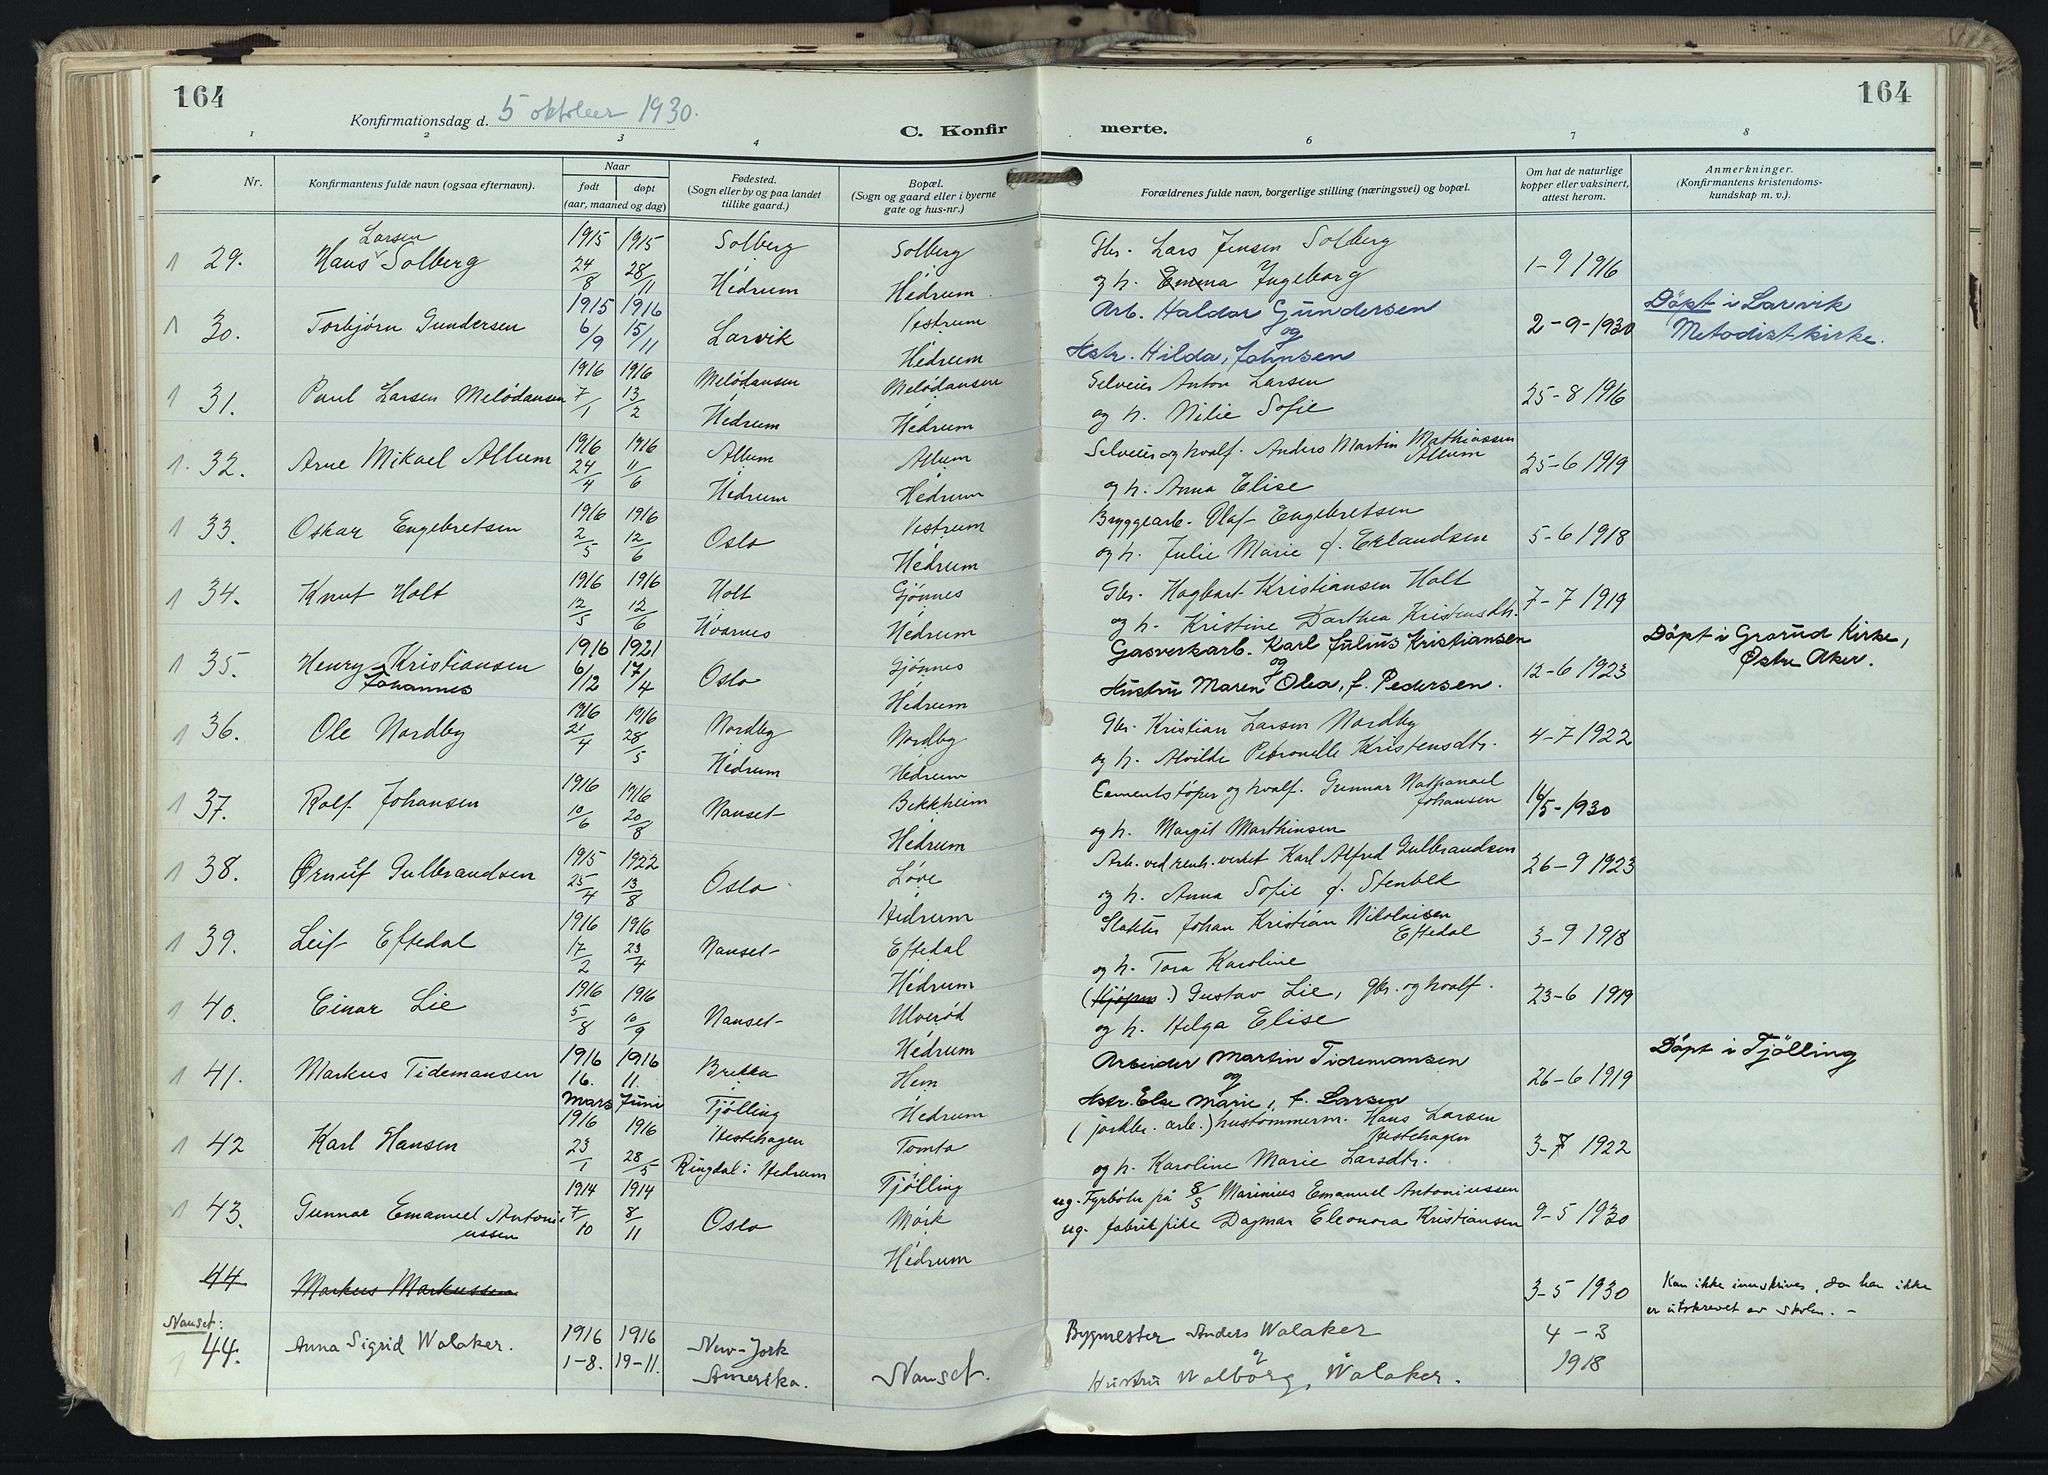 164
164
Konfirmationsdag d. 5 oktober 1930.
C. Konfirmerte.
1 2 3 4 6 7 8
Nr.
Konfirmantens fulde navn (ogsaa efternavn).
Naar
født
døpt
(aar, maaned og dag)
Fødested.
(Sogn eller by og paa landet
tillike gaard.)
Bopæl.
(Sogn og gaard eller i byerne
gate og hus-nr.)
Forældrenes fulde navn, borgerlige stilling (næringsvei) og bopæl.
Om hat de naturlige
kopper eller vaksinert,
attest herom.
Anmerkninger.
(Konfirmantens kristendoms-
kundskap m. v.).
1 29. Hans Larsen Solberg 1915 24/8 1915 28/11 Solberg Hedrum Solberg Hedrum. Gbr. Lars Jensen Solberg
og h. Emma Ingeborg 1-9 1916
1 30. Torbjørn Gundersen 1915 6/9 1916 15/11 Larvik Vestrum Hedrum Arb. Haldor Gundersen
og
Hstr. Hilda, Johnsen 2-9-1930 Döpt i Larvik
Metodistkirke.
1 31. Paul Larsen Melödansen 1916 7/1 1916 13/2 Melödansen Hedrum Melödansen Hedrum Selveier Anton Larsen
og h. Nilie Sofie 25-8 1916
1. 32. Arne Mikael Allum 1916 24/4 1916 11/6 Allum Hedrum Allum Hedrum Selveier og hvalf. Anders Martin Mathiassen
Allum
og h. Anna Elise 25-6 1919
1 33. Oskar Engebretsen 1916 2/5 1916 12/6 Oslo Vestrum Hedrum Bryggearb. Olaf Engebretsen
og h. Julie Marie f. Erlandsen 5-6 1918
1 34. Knut Holt 1916 12/5 1916 12/6 Holt Hvarnes Gjönnes Hedrum Gbr. Hagbart Kristiansen Holt
og h. Kristine Dorthea Kristensdtr. 7-7 1919
1 35. Henry Kristiansen
Johannes 1916 6/12 1921 17/4 Oslo Gjönnes Hedrum Gasverkarb. Karl Julius Kristiansen
og
Hustru Maren Olea, f. Pedersen. 12-6 1923 Döpt i Grorud Kirke,
Østre Aker.
1 36. Ole Nordby 1916 21/4 1916 28/5 Nordby Hedrum Nordby Hedrum Gbr. Kristian Larsen Nordby
og h. Alvilde Petronelle Kristensdtr. 4-7 1922
1 37. Rolf Johansen 1916 10/6 1916 20/8 Nanset Bekkheim Hedrum Cementstøper og hvalf. Gunnar Natanael
Johansen
og h. Margit Marthinsen 16/5-1930
1 38. Ørnulf Gulbrandsen 1915 25/4 1922 13/8 Oslo Løve Hedrum Arb. ved renh. verket Karl Alfred Gulbrandsen
og h. Anna Sofie f. Stenbek 26-9 1923
1 39. Leif Eftedal 1916 17/2 1916 23/4 Nanset Eftedal Hedrum Slakter Johan Kristian Nikolaisen
Eftedal
og h. Tora Karoline 3-9 1918
1 40. Einar Lie 1916 5/8 1916 10/9 Nanset Ulveröd Hedrum (Kjøpm.) Gustav Lie, gbr. og hvalf.
og h. Helga Elise 23-6 1919
1 41. Markus Tidemansen 1916 16. Mars 1916 11. Juni Brekka i Tjølling Hem Hedrum Arbeider Martin Tidemansen
og
Hstr. Else Marie, f. Larsen 26-6 1919 Döpt i Tjölling
1 42 Karl Hansen 1916 23/1 1916 28/5 Hestehagen Ringdal i Hedrum Tomta i Tjølling (jordbr. arb.) hustømmerm. Hans Larsen
Hestehagen
og h. Karoline Marie Larsdtr. 3-7 1922
1 43. Gunnar Emanuel Antoni-
ussen 1914 7/10 1914 8/11 Oslo Mörk Hedrum ug. Fyrbøter på S/S Marinius Emanuel Antoniussen
ug. fabrikpike Dagmar Eleonora Kristiansen 9-5 1930
44 Markus Markussen 3-5 1930 Kan ikke innskrives, da han ikke
er utskrevet av skolen. -
Nanset:
1 44. Anna Sigrid Walaker. 1916 1-8. 1916 19-11. New-York Amerika. Nanset. Bygmester Anders Walaker
og
Hustru Walborg, Walaker. 4-3
1918